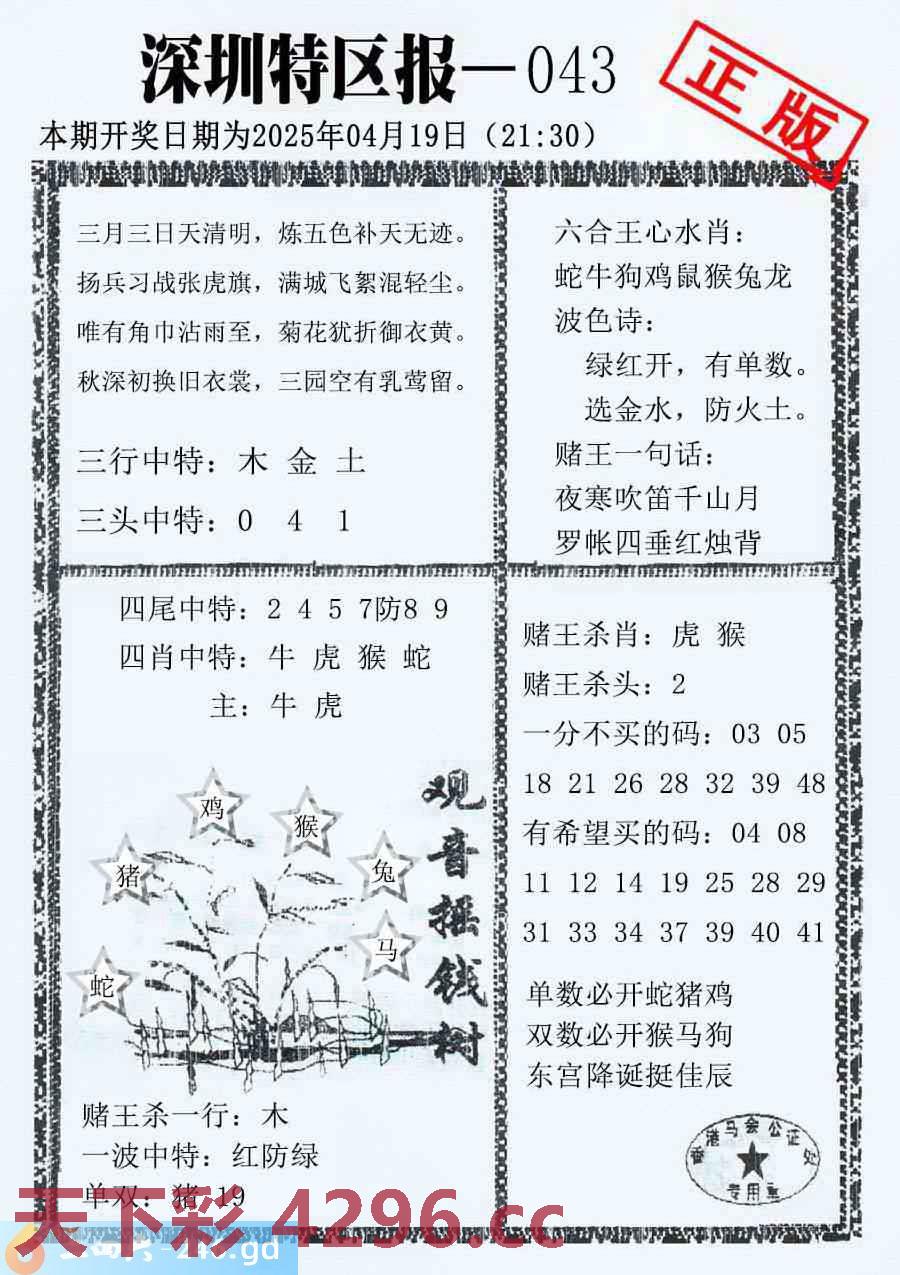 深圳特区报—043
正版
本期开奖日期为2025年04月19日（21:30）
三月三日天清明，炼五色补天无迹。
扬兵习战张虎旗，满城飞絮混轻尘。
唯有角巾沾雨至，菊花犹折御衣黄。
秋深初换旧衣裳，三园空有乳莺留。
三行中特：木 金 土
三头中特：0 4 1
六合王心水肖：
蛇牛狗鸡鼠猴兔龙
波色诗：
绿红开，有单数。
选金水，防火土。
赌王一句话：
夜寒吹笛千山月
罗帐四垂红烛背
四尾中特：2 4 5 7防8 9
四肖中特：牛 虎 猴 蛇
主：牛 虎
鸡
猴
猪
兔
马
蛇
观音摇钱树
赌王杀一行：木
一波中特：红防绿
单双：猪 19
赌王杀肖：虎 猴
赌王杀头：2
一分不买的码：03 05
18 21 26 28 32 39 48
有希望买的码：04 08
11 12 14 19 25 28 29
31 33 34 37 39 40 41
单数必开蛇猪鸡
双数必开猴马狗
东宫降诞挺佳辰
香港马会公证处
专用章
天下彩 4296.cc